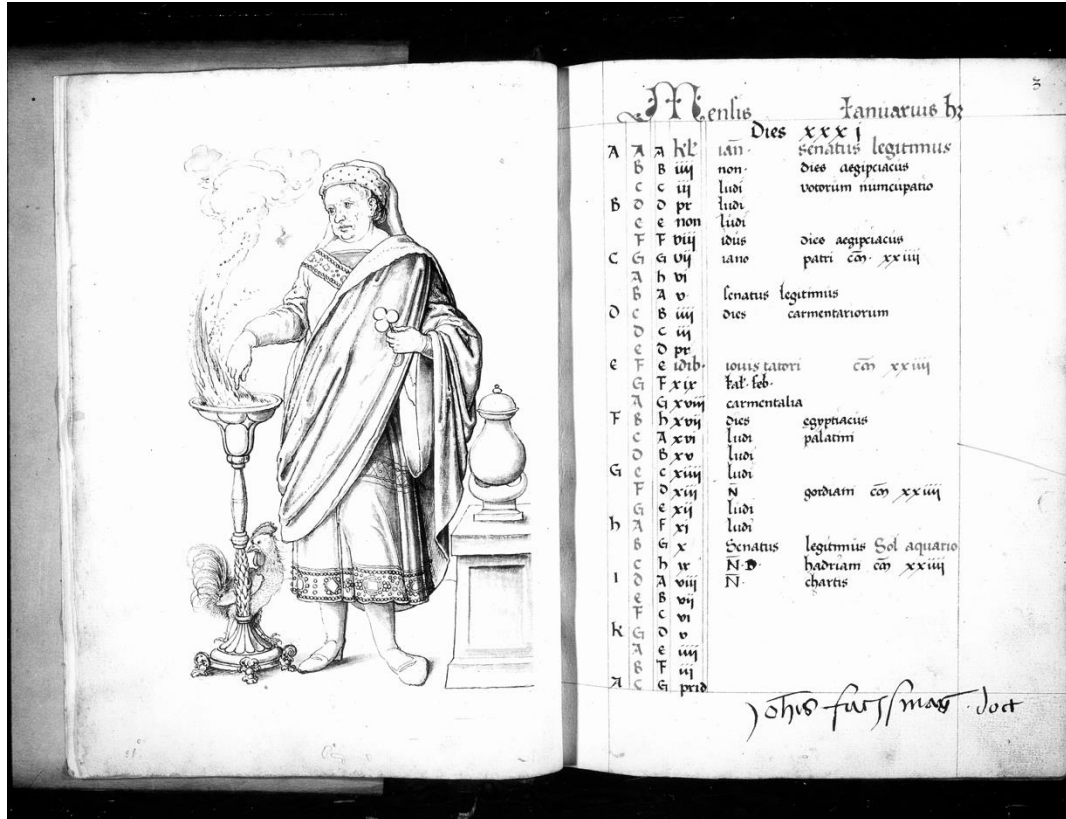 3
Mensis Ianuarius hꝫ
Dies xxxj
A A A kł ian̄· senatus legitimus
B B iiij non· dies aegipciacus
C C iij ludi votorum numcupatio
B D D pr ludi
e e non ludi
F F viij idus dies aegipciacus
C G G vij iano patri cm̄· xxiiij
A h vi
B A v· senatus legitimus
D C B iiij dies carmentariorum
D C iij
e D pr
e F e idib· iouis tatori cm̄ xxiiij
G F xix kał· feb·
A G xviij carmentalia
F B h xvij dies egyptiacus
C A xvi ludi palatini
D B xv ludi
G e C xiiij ludi
F D xiij N̄ gordiani cm̄ xxiiij
G e xij ludi
h A F xi ludi
B G x Senatus legitimus Sol aquario
C h ix N̄·D· hadriani cm̄ xxiiij
I D A viij N̄· chartis
e B vij
F C vi
k G D v
A e iiij
B F iij
A C G prid
doct